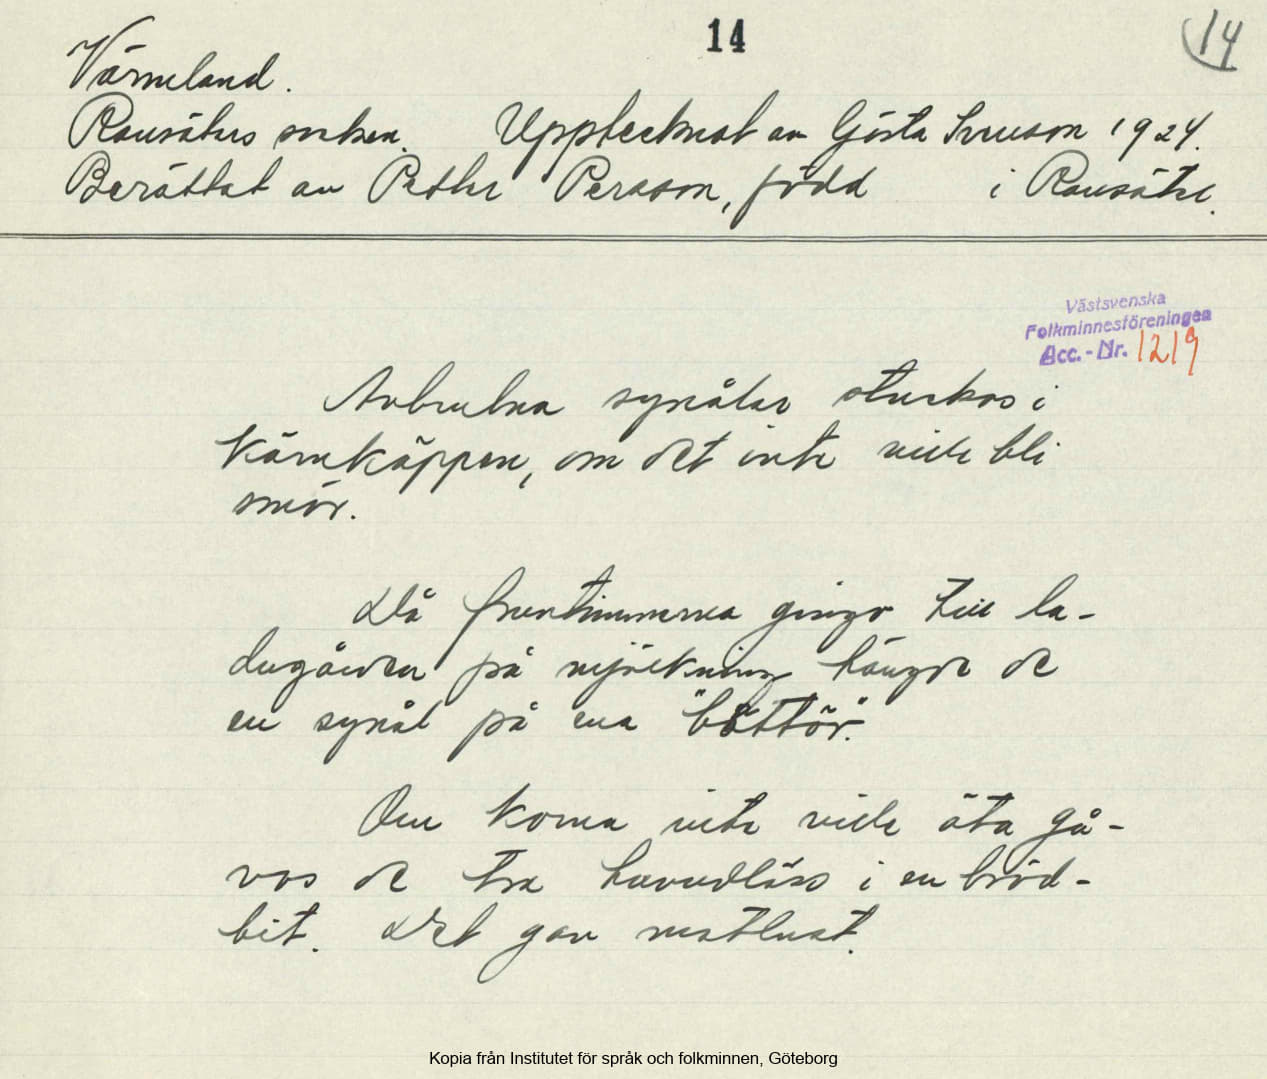 14
14
Värmeland.
Ransäters socken. Upptecknat av Gösta Ivenson 1924.
Berättat av Petter Persson, född i Ransäter.
Västsvenska
Folkminnesföreningen
Acc.-Nr. 1219
Avbrutna synålar stuckos i
kärnkäppen, om det inte ville bli
smör.
Då fruntimmerna gingo till la-
dugården på mjölkning hängde de
en synål på ena "böttör".
Om korna inte ville äta gå-
vos de tre huvudlöss i en bröd-
bit. Det gav matlust.
Kopia från Institutet för språk och folkminnen, Göteborg